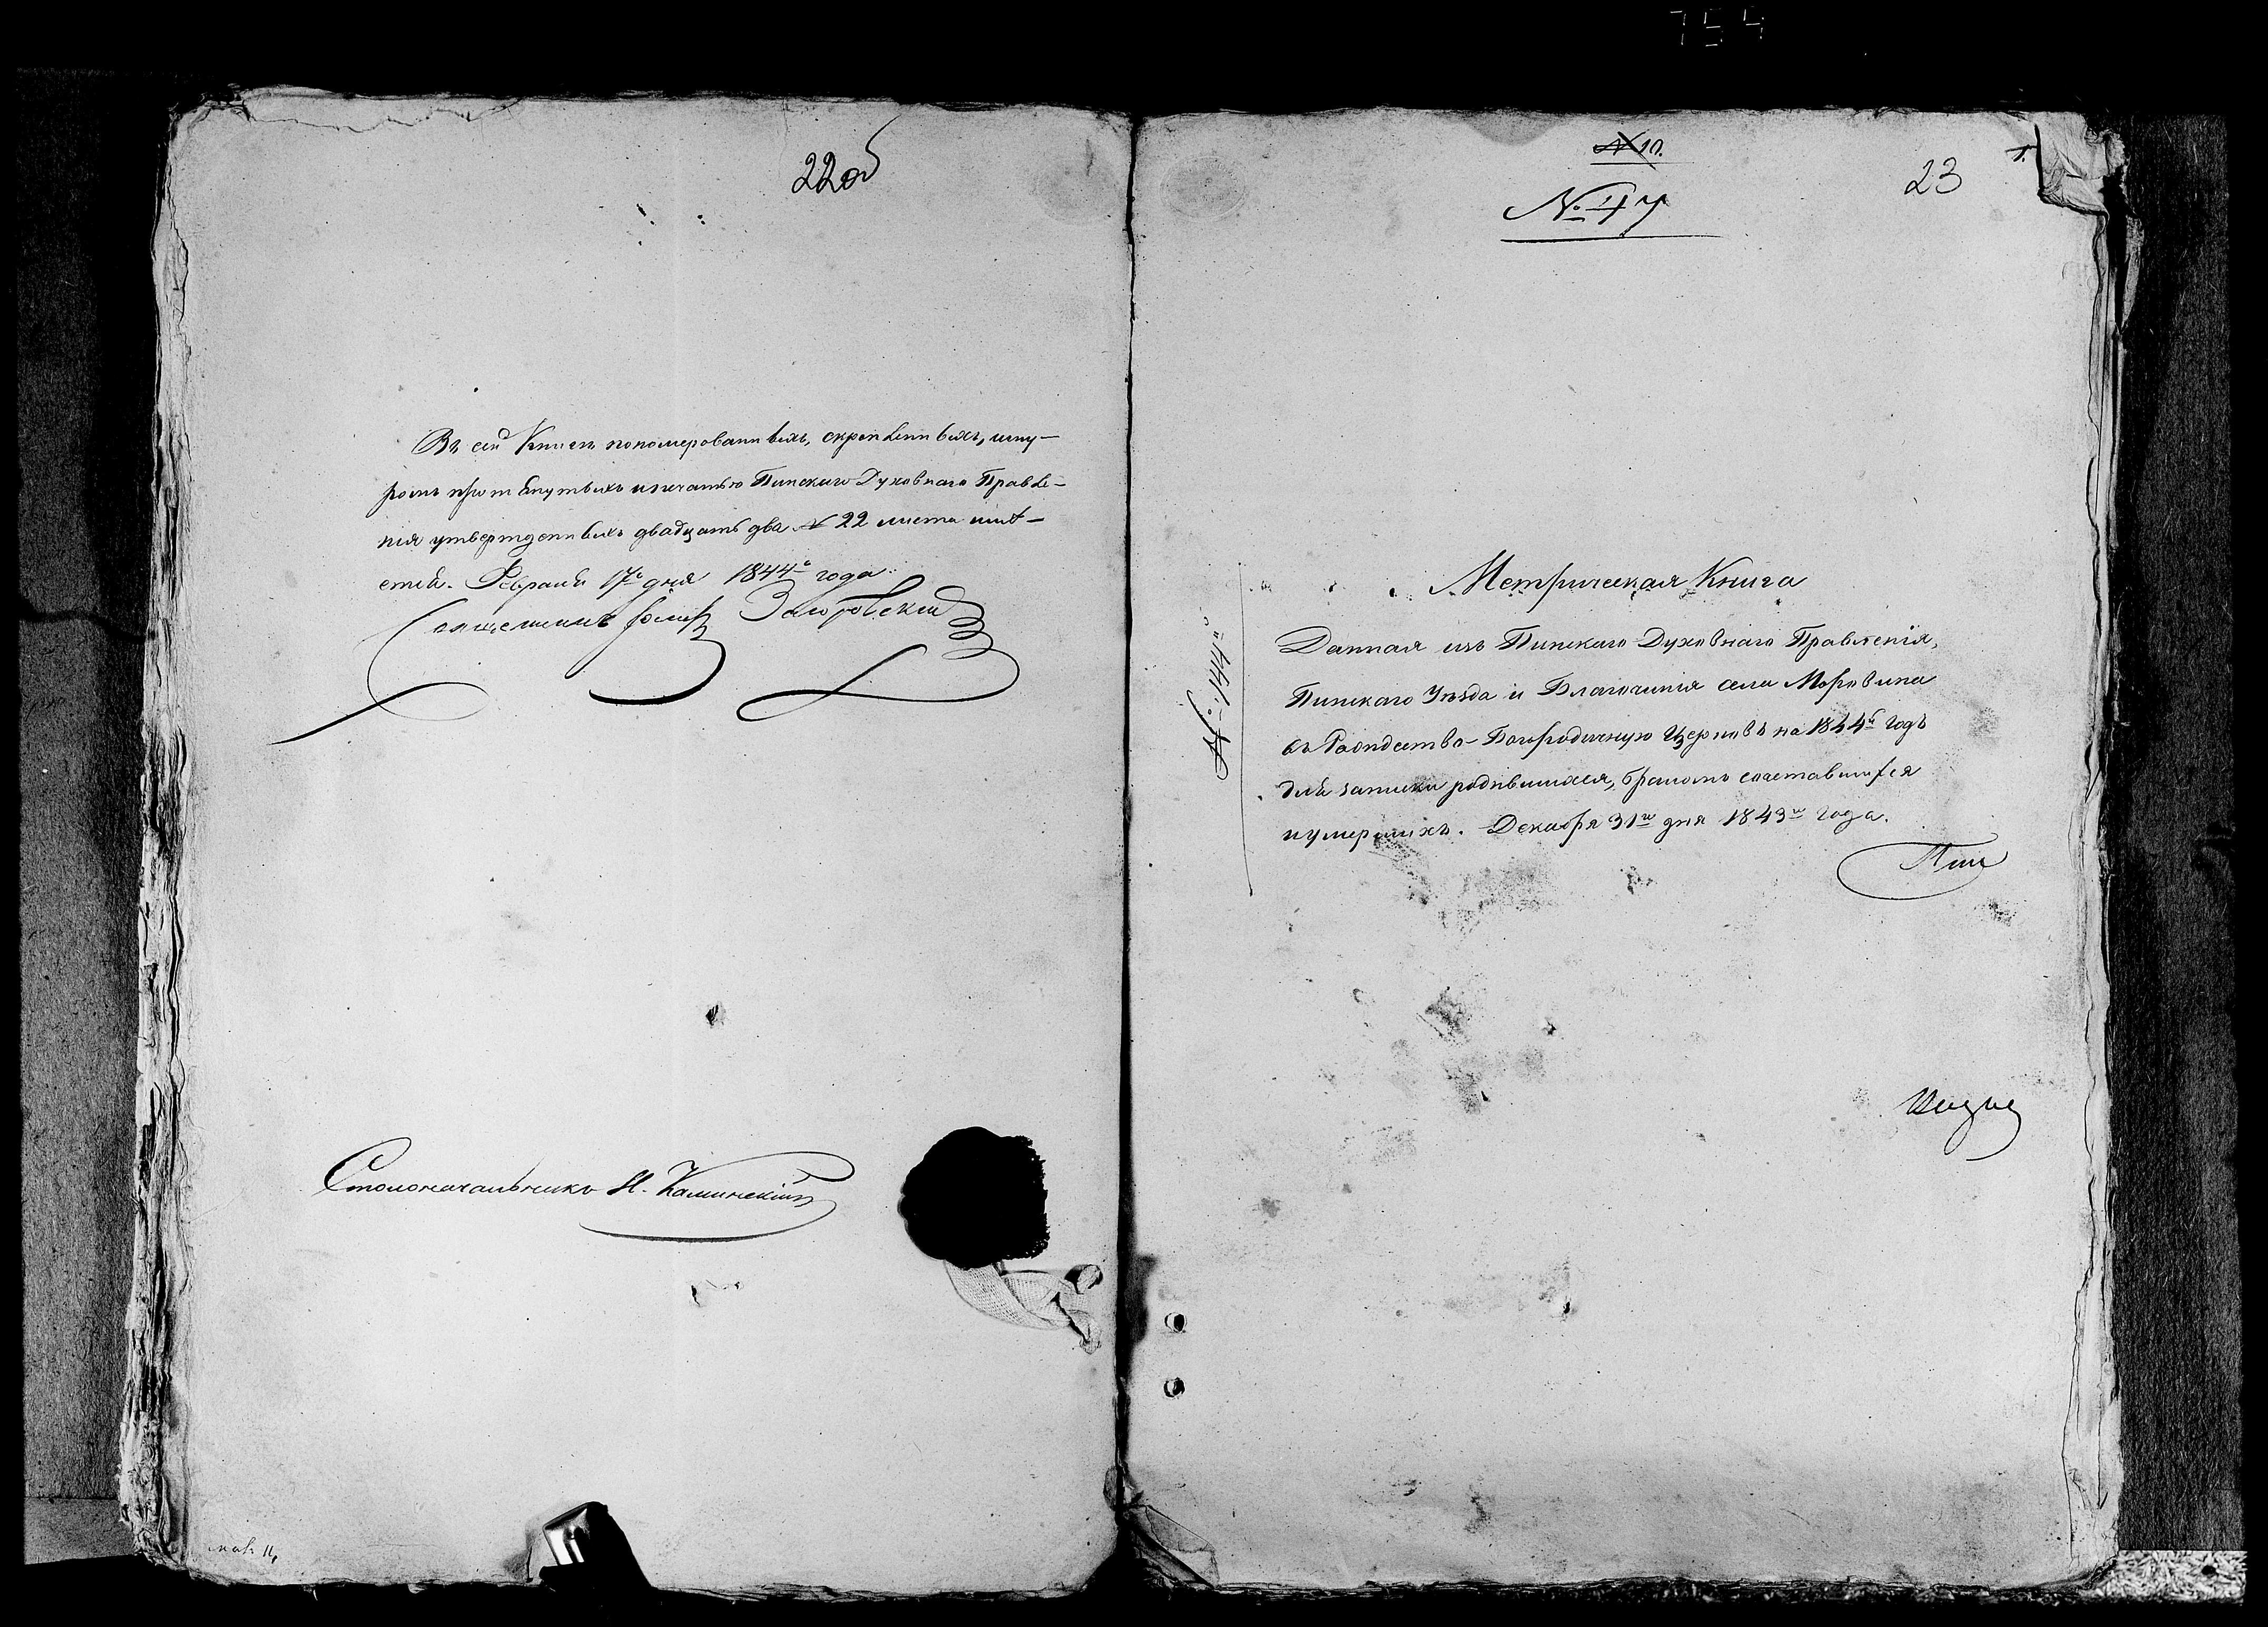 754
22об
Въ сей Книгѣ пономерованныхъ, скрѣпленныхъ, шну-
ромъ протянутыхъ и печатью Пинскаго Духовнаго Правле-
нія утвержденныхъ двадцать два № 22 листа имѣ-
ется. Февраля 17го дня 1844го года.
Священникъ
Столоначальникъ Н. Каминскій
№ 10.
№ 47
23
1.
1844го
Метрическая Книга
Данная изъ Пинскаго Духовнаго Правленія,
Пинскаго Уѣзда и Благочинія села Моровина
въ Рождество-Богородичную Церковь на 1844й годъ
для записки родившихся, бракомъ сочетавшихся
и умершихъ. Декабря 31го дня 1843го года.
Пин